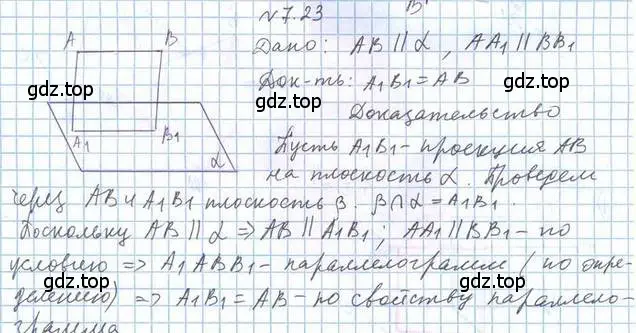 N 7.23
Дано: AB || α, AA₁ || BB₁
Док-ть: A₁B₁ = AB
Доказательство
Пусть A₁B₁ - проекция AB
на плоскость α. Проведем
через AB и A₁B₁ плоскость β. β∩α = A₁B₁.
Поскольку AB || α => AB || A₁B₁; AA₁ || BB₁ - по
условию => A₁ABB₁ - параллелограмм (по опре-
делению) => A₁B₁ = AB - по свойству параллело-
грамма
A B
gdz.top gdz.top
A₁ B₁
α
gdz.top gdz.top